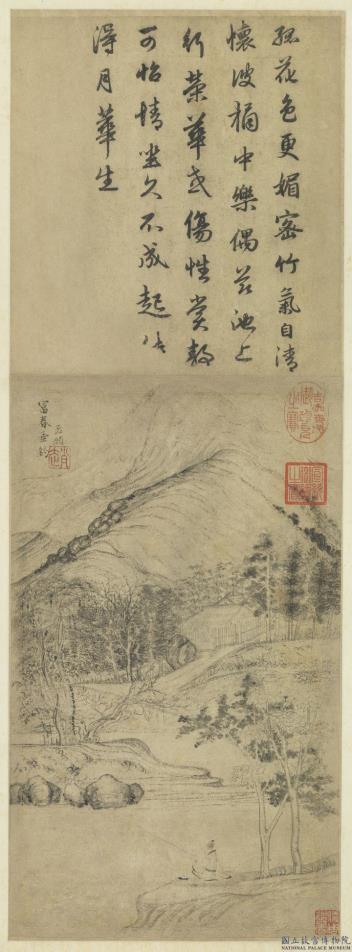 孤花色更媚密竹氣自清
懷彼橘中樂偶茲池上
行榮華或傷性寞靜
可怡情坐久不成起
得月華生
富春垂釣
國立故宮博物院
NATIONAL PALACE MUSEUM